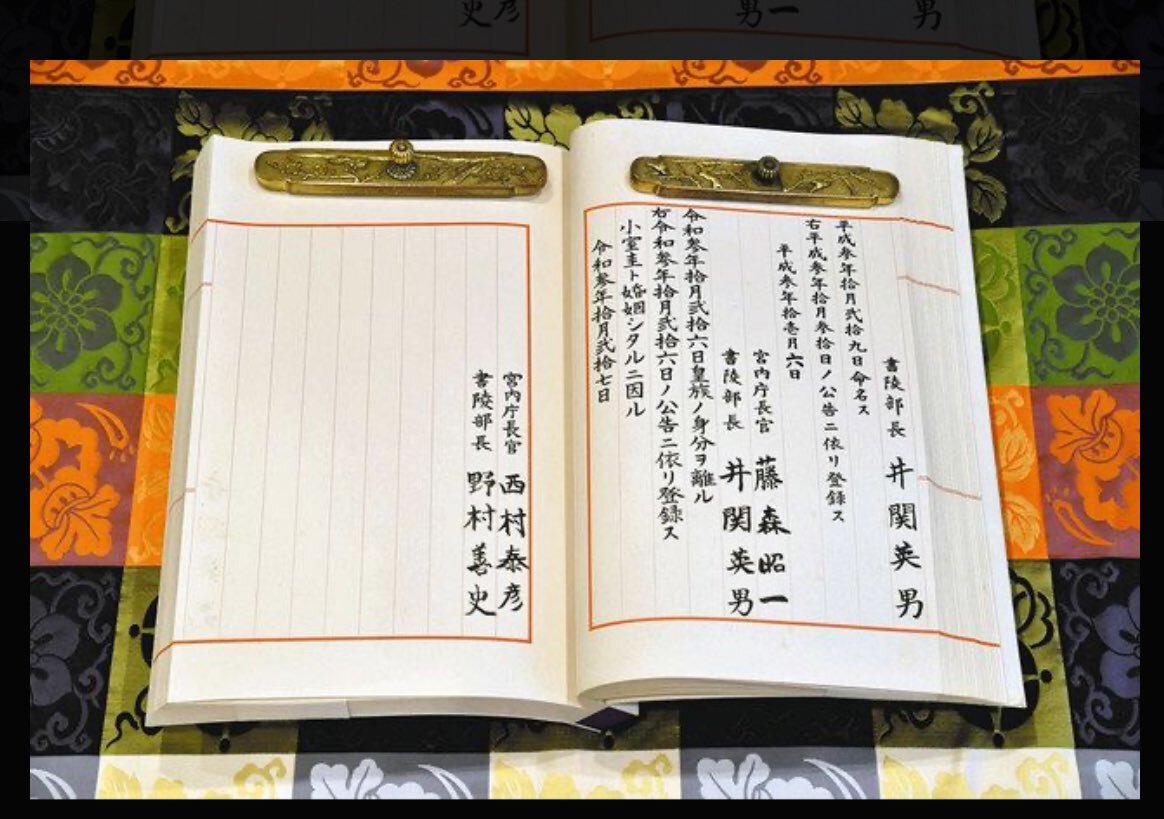 男
一
男
彦
史
書陵部長 井関英男
平成参年拾月弐拾九日命名ス
右平成参年拾月参拾日ノ公告ニ依リ登録ス
平成参年拾壱月六日
宮内庁長官 藤森昭一
書陵部長 井関英男
令和参年拾月弐拾六日皇族ノ身分ヲ離ル
右令和参年拾月弐拾六日ノ公告ニ依リ登録ス
小室圭ト婚姻シタルニ因ル
令和参年拾月弐拾七日
宮内庁長官 西村泰彦
書陵部長 野村善史